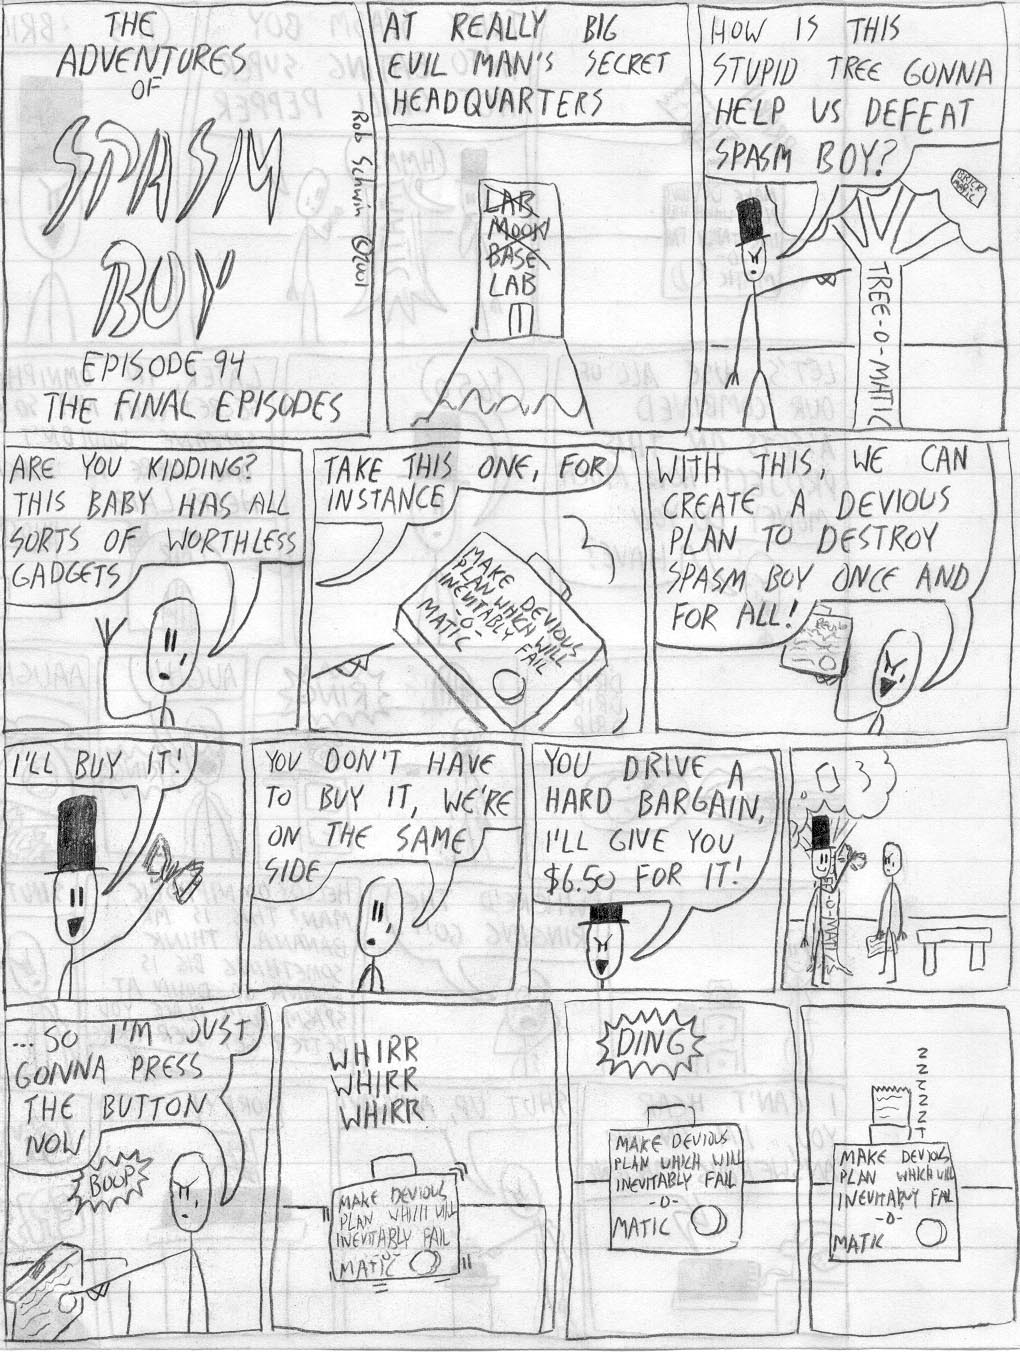 THE
ADVENTURES
OF
SPASM
BOY
EPISODE 94
THE FINAL EPISODES
Rob Schwin ©2001
AT REALLY BIG
EVIL MAN'S SECRET
HEADQUARTERS
LAB
MOON
BASE
LAB
HOW IS THIS
STUPID TREE GONNA
HELP US DEFEAT
SPASM BOY?
BRICK
MATIC
TREE-O-MATIC
ARE YOU KIDDING?
THIS BABY HAS ALL
SORTS OF WORTHLESS
GADGETS
TAKE THIS ONE, FOR
INSTANCE
MAKE DEVIOUS
PLAN WHICH WILL
INEVITABLY FAIL
-O-
MATIC
WITH THIS, WE CAN
CREATE A DEVIOUS
PLAN TO DESTROY
SPASM BOY ONCE AND
FOR ALL!
I'LL BUY IT!
YOU DON'T HAVE
TO BUY IT, WE'RE
ON THE SAME
SIDE
YOU DRIVE A
HARD BARGAIN,
I'LL GIVE YOU
$6.50 FOR IT!
-O-MATIC
...SO I'M JUST
GONNA PRESS
THE BUTTON
NOW
BOOP
WHIRR
WHIRR
WHIRR
MAKE DEVIOUS
PLAN WHICH WILL
INEVITABLY FAIL
-O-
MATIC
DING
MAKE DEVIOUS
PLAN WHICH WILL
INEVITABLY FAIL
-O-
MATIC
ZZZZZZT
MAKE DEVIOUS
PLAN WHICH WILL
INEVITABLY FAIL
-O-
MATIC